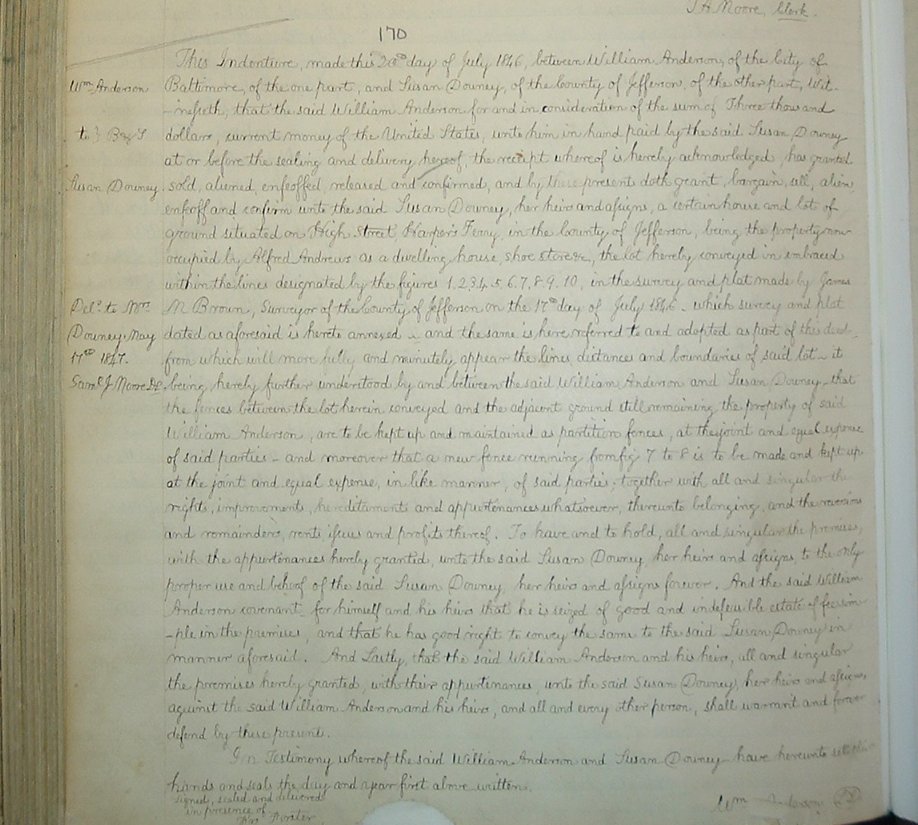 J A Moore, Clerk.
170
This Indenture, made this 20th day of July 1846, between William Anderson, of the City of
Wm Anderson
Baltimore, of the one part, and Susan Downey, of the County of Jefferson, of the other part, Wit-
-nesseth, that the said William Anderson for and in consideration of the sum of Three thousand
to } B & S
dollars, current money of the United States, unto him in hand paid by the said Susan Downey
at or before the sealing and delivery hereof, the receipt whereof is hereby acknowledged, has granted
Susan Downey
sold, aliened, enfeoffed, released and confirmed, and by these presents doth grant, bargain, sell, alien
enfeoff and confirm unto the said Susan Downey, her heirs and assigns, a certain house and lot of
ground situated on High Street, Harper's Ferry, in the County of Jefferson, being the property now
occupied by Alfred Andrews as a dwelling house, shoe store &c, the lot hereby conveyed in embraced
within the lines designated by the figures 1, 2, 3, 4, 5, 6, 7, 8, 9, 10, in the survey and plat made by James
Del'd to Mrs
M Brown, Surveyor of the County of Jefferson on the 17th day of July 1846 - which survey and plat
Downey May
dated as aforesaid is hereto annexed - and the same is here referred to and adopted as part of this deed -
17th 1847.
from which will more fully and minutely appear the lines distances and boundaries of said lot - it
Saml J Moore
being hereby further understood by and between the said William Anderson and Susan Downey - that
the fences between the lot herein conveyed and the adjacent ground still remaining the property of said
William Anderson, are to be kept up and maintained as partition fences, at the joint and equal expense
of said parties - and moreover that a new fence running from fig 7 to 8 is to be made and kept up
at the joint and equal expense, in like manner, of said parties; together with all and singular the
rights, improvements, hereditaments and appurtenances whatsoever, thereunto belonging, and the reversions
and remainders, rents issues and profits thereof. To have and to hold, all and singular the premises,
with the appurtenances hereby granted, unto the said Susan Downey her heirs and assigns, to the only
proper use and behoof of the said Susan Downey, her heirs and assigns forever. And the said William
Anderson covenants for himself and his heirs that he is seized of good and indefeasible estate of fee sim-
-ple in the premises, and that he has good right to convey the same to the said Susan Downey in
manner aforesaid. And Lastly, that the said William Anderson and his heirs, all and singular
the premises hereby granted, with their appurtenances, unto the said Susan Downey, her heirs and assigns,
against the said William Anderson and his heirs, and all and every other person, shall warrant and forever
defend by these present.
In Testimony whereof the said William Anderson and Susan Downey have hereunto set their
hands and seals the day and year first above written.
Signed, sealed and delivered
in presence of
Wm Anderson